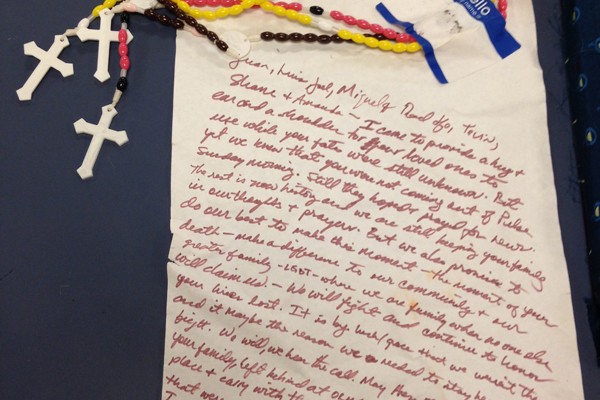 llo
name is
Juan, Luis Joel, Miguel,
Shane + Amanda — I came to provide a hug +
ear and a shoulder for your loved ones to
use while your fates were still unknown. But
yet we knew that you were not coming out of Pulse
Sunday morning. Still they hoped + prayed for news.
The rest is now history and we are still keeping your family
in our thoughts + prayers. But we also promise to
do our best to make this moment — the moment of your
death — make a difference to our community + our
greater family — LGBT — where we are family when no one else
will claim us — We will fight and continue to honor
your lives lost. It is by luck/ we weren't the
and it maybe the reason we needed to stay
fight. We will, we hear the call. May
your family, left behind at
place + carry with
that were